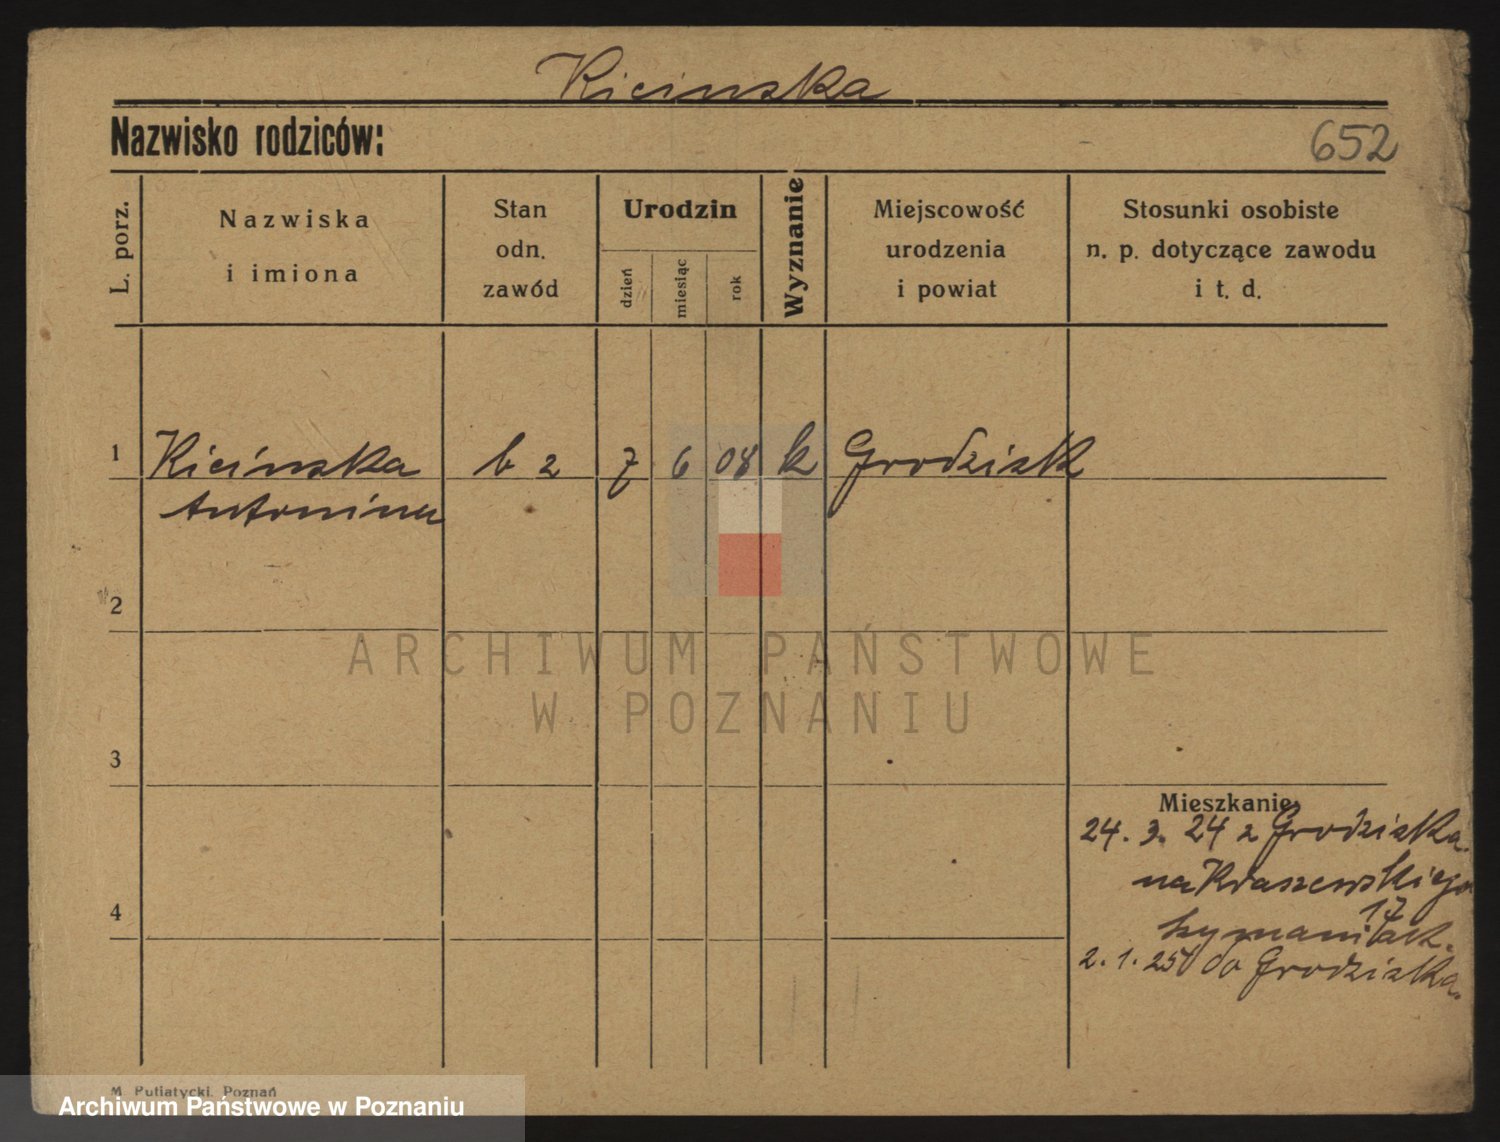 Kicinska
Nazwisko rodziców:
652
L. porz.
Nazwiska
i imiona
Stan
odn.
zawód
Urodzin
dzień
miesiąc
rok
Wyznanie
Miejscowość
urodzenia
i powiat
Stosunki osobiste
n. p. dotyczące zawodu
i t. d.
1
Kicinska
Antonina
b z
7
6
08
k
Grodzisk
2
ARCHIWUM PAŃSTWOWE
W POZNANIU
3
Mieszkanie:
24. 3. 24 z Grodziska.
na Kraszewskiego
17
4
2. 1. 25 do Grodziska.
M. Putiatycki, Poznań
Archiwum Państwowe w Poznaniu